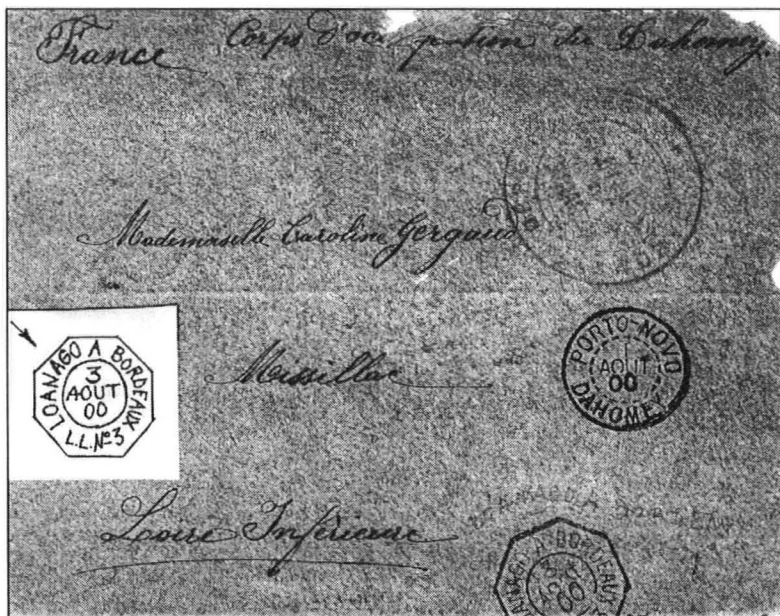 France
Corps d'occupation du Dahomey.
Mademoiselle Caroline Gergaud
LOANAGO A BORDEAUX
3
AOUT
00
L.L.Nº3
Missillac
PORTO-NOVO
1
AOUT
00
DAHOMEY
Loire Inférieure
LOANAGO A BORDEAUX
3
AOUT
00